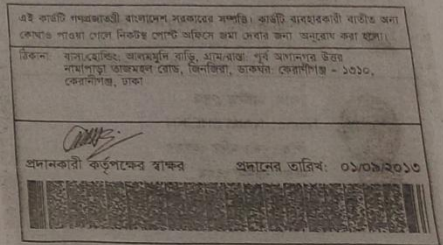 এই কার্ডটি গণপ্রজাতন্ত্রী বাংলাদেশ সরকারের সম্পত্তি। কার্ডটি ব্যবহারকারী ব্যতীত অন্য
কোথাও পাওয়া গেলে নিকটস্থ পোস্ট অফিসে জমা দেবার জন্য অনুরোধ করা হলো।
ঠিকানা: বাসা/হোল্ডিং: আলমমুদি বাড়ি, গ্রাম/রাস্তা: পূর্ব আগানগর উত্তর
নামাপাড়া তাজমহল রোড, জিনজিরা, ডাকঘর: কেরানীগঞ্জ - ১৩১০,
কেরানীগঞ্জ, ঢাকা
প্রদানকারী কর্তৃপক্ষের স্বাক্ষর প্রদানের তারিখ: ০১/০৯/২০১৩